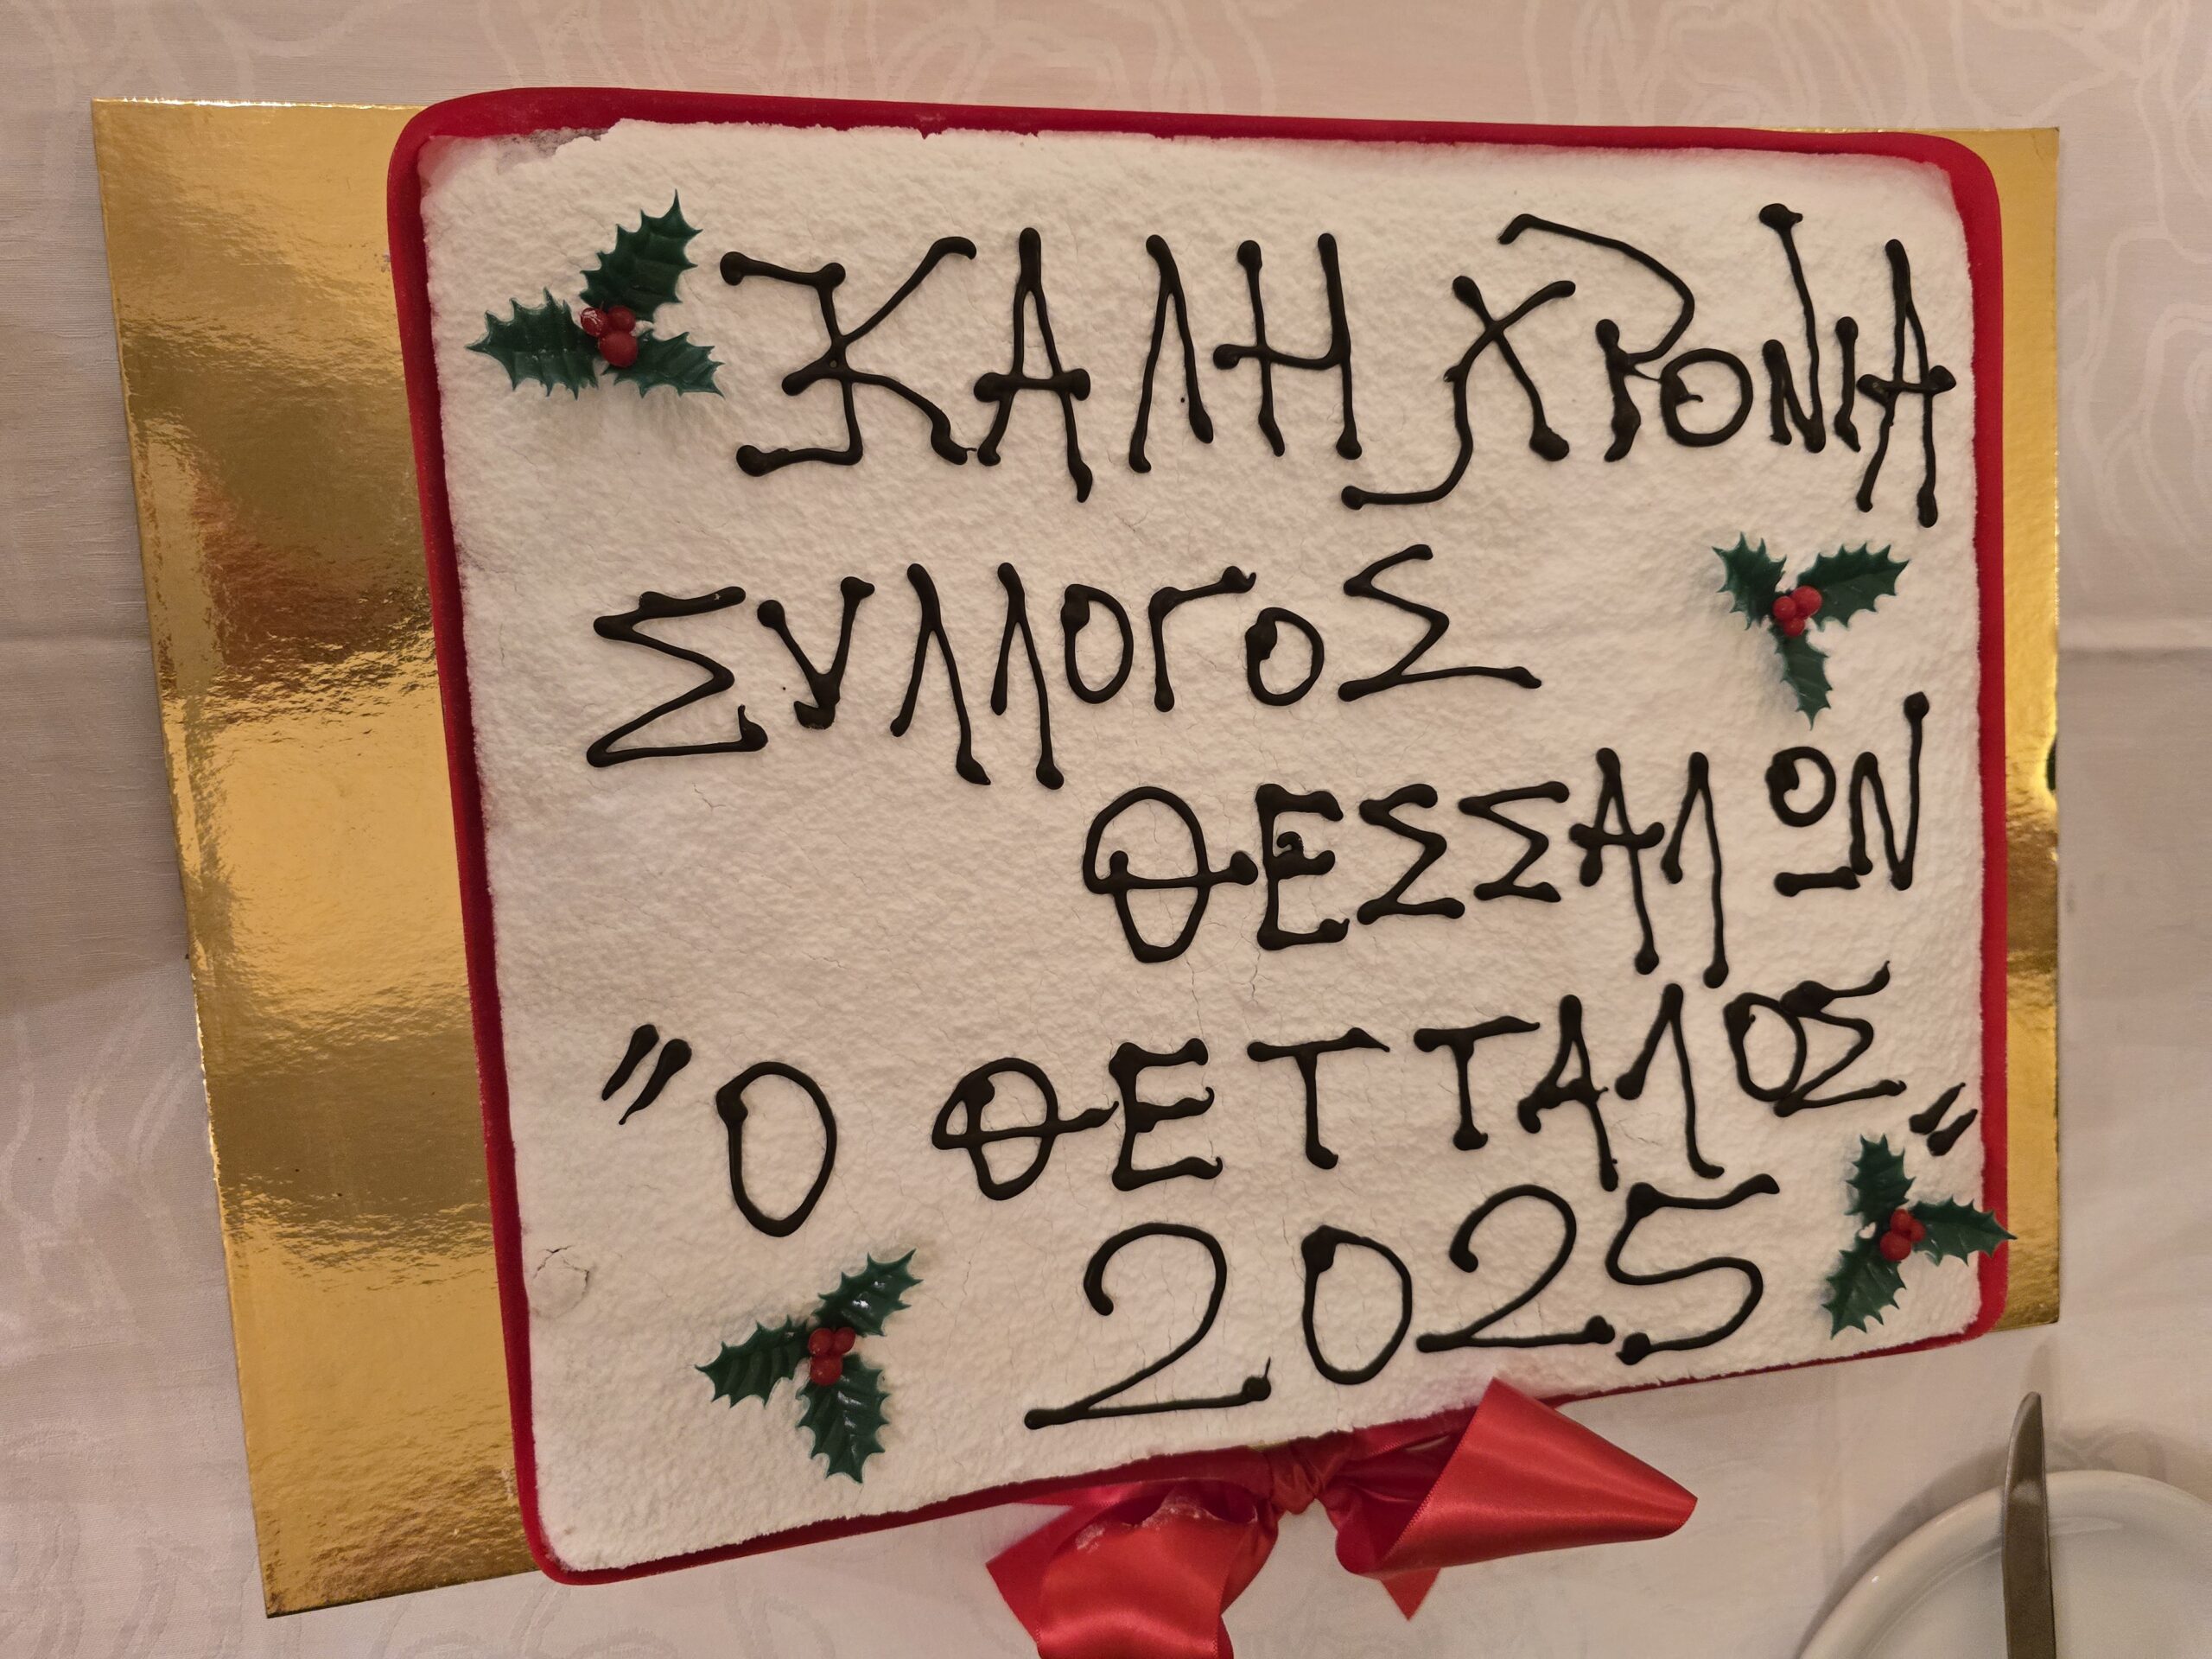 ΚΑΛΗ ΧΡΟΝΙΑ
ΣΥΛΛΟΓΟΣ
ΘΕΣΣΑΛΩΝ
"Ο ΘΕΤΤΑΛΟΣ"
2025